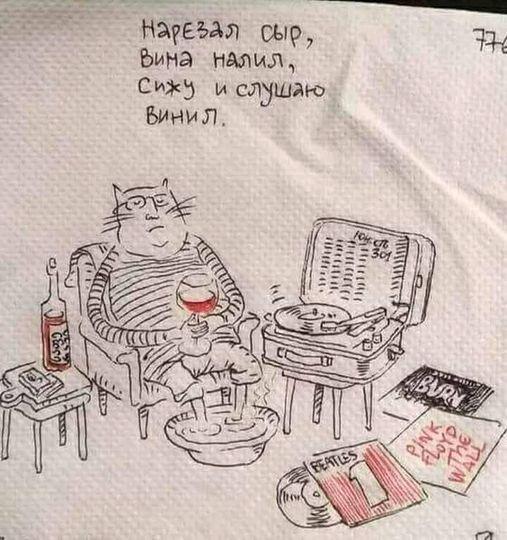 Нарезал сыр,
Вина налил,
Сижу и слушаю
Винил.
776
Юность
301
BURN
PINK
FLOYD
THE
WALL
BEATLES
1